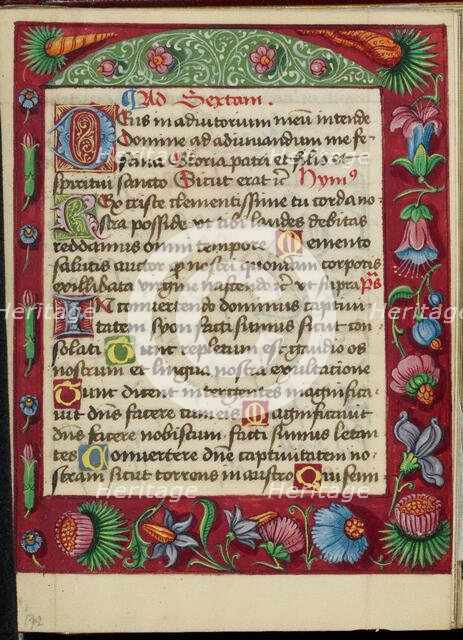 Ad Sextam.
Deus in adiutorium meu intende
Domine ad adiuuandum me fe
stina Gloria patri et filio et
spiritui sancto Sicut erat ic Hymꝰ
Rex criste clementissime tu corda no
stra posside ut tibi laudes debitas
reddamus omni tempore Memento
salutis auctor ꝙ nostri quondam corporis
ex illibata virgine nascendo ic ut supra ps
IN conuertendo dominus captiui
tatem syon facti sumus sicut con
solati Tunc repletum est gaudio os
nostrum et lingua nostra exultatione
Tunc dicent inter gentes magnifica
uit dns facere cum eis Magnificauit
dns facere nobiscum facti sumus letan
tes Conuertere dne captiuitatem no
stram sicut torrens in austro Qui semi
Heritage
Heritage
Heritage
Heritage
Heritage
Heritage